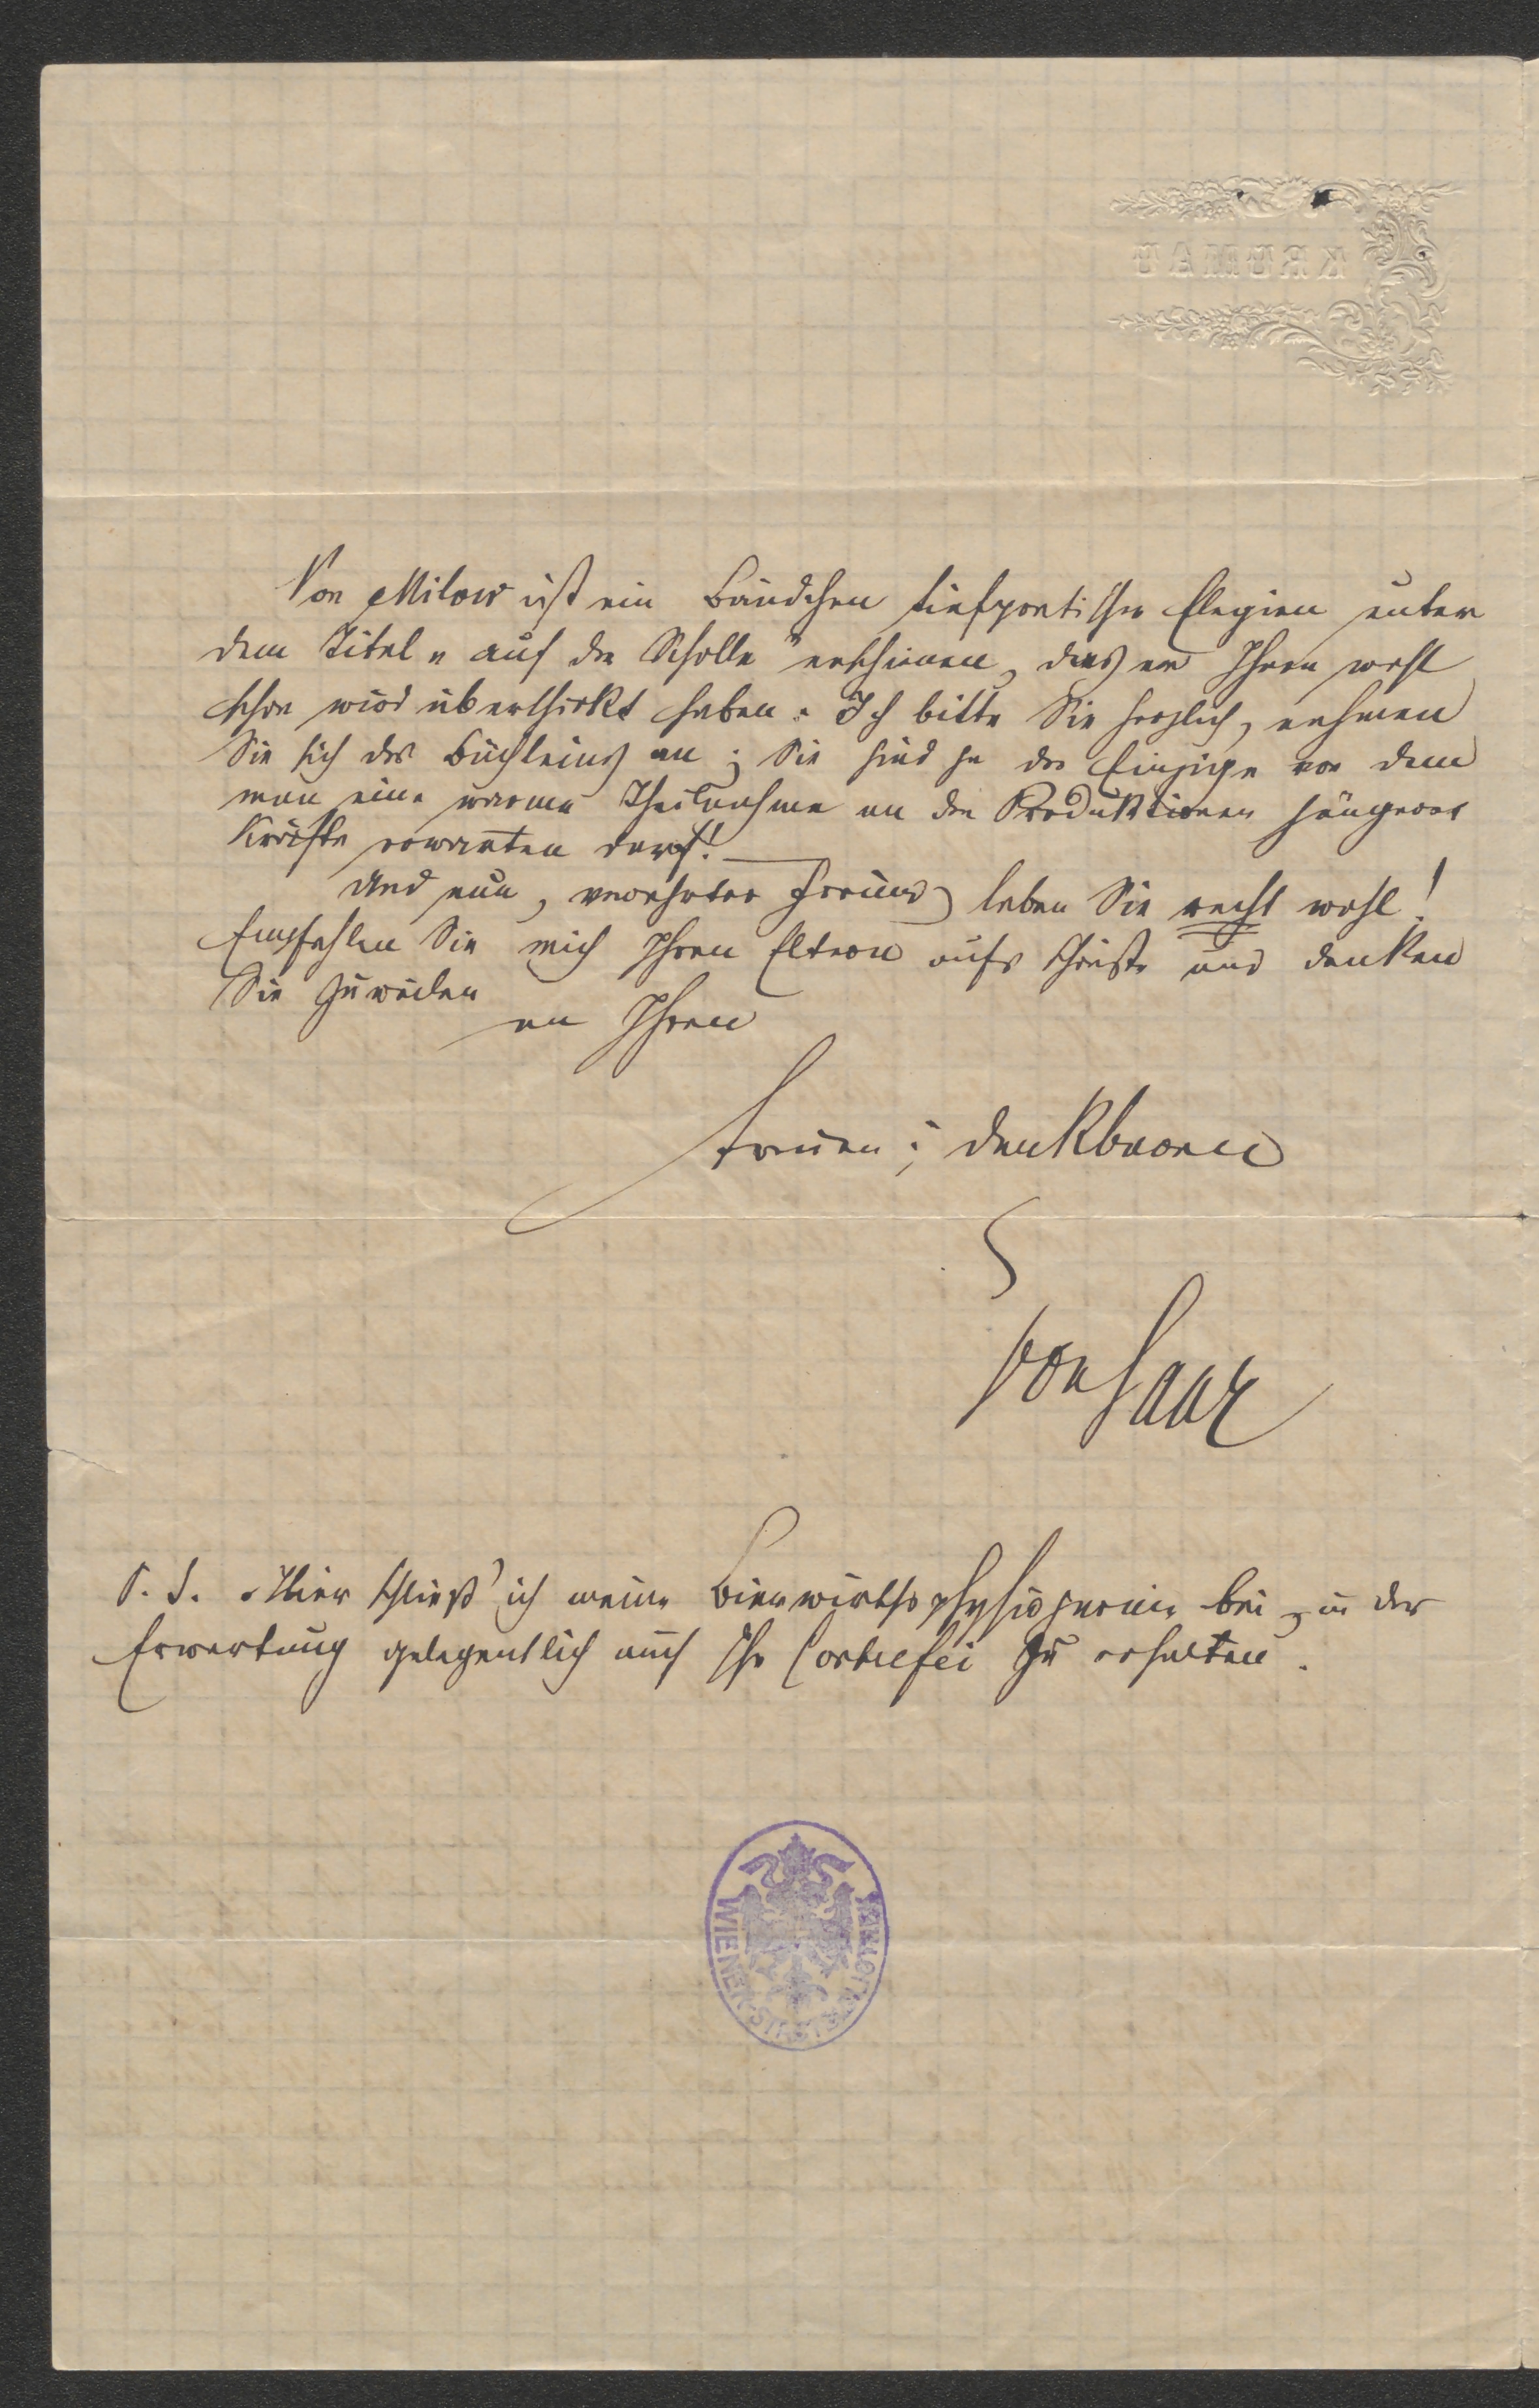 KRUMAU
Von Milow ist ein Bändchen tiefpoetischer Elegien unter
dem Titel „auf der Scholle" erschienen, das er Ihnen wohl
schon wird überschickt haben. Ich bitte Sie herzlich, nehmen
Sie sich des Büchleins an; Sie sind ja der Einzige von dem
man eine warme Theilnahme an den Produktionen jüngerer
Kräfte erwarten darf! —
Und nun, verehrter Freund leben Sie recht wohl!
Empfehlen Sie mich Ihren Eltern aufs und denken
Sie zuweilen
an Ihren
treuen; dankbaren
von Saar
P. S. Hier schließ' ich meine Bierwirthsphysiognomie bei, in der
Erwartung gelegentlich auch Ihr zu erhalten.
WIENER STADTBIBLIOTHEK